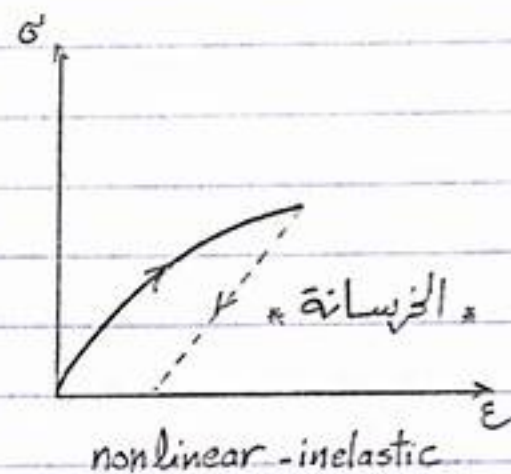 σ
* الخرسانة *
ε
nonlinear - inelastic